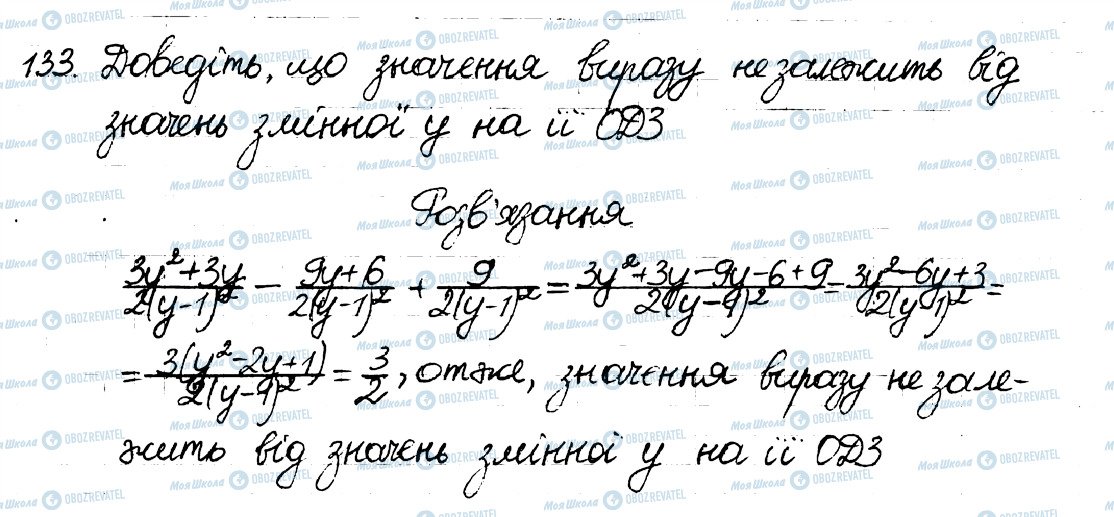 133. Доведіть, що значення виразу не залежить від
значень змінної y на її ОДЗ
Розв'язання
(3y²+3y)/(2(y-1)²) - (9y+6)/(2(y-1)²) + 9/(2(y-1)²) = (3y²+3y-9y-6+9)/(2(y-1)²) = (3y²-6y+3)/(2(y-1)²) =
= (3(y²-2y+1))/(2(y-1)²) = 3/2, отже, значення виразу не зале-
жить від значень змінної y на її ОДЗ
Моя Школа OBOZREVATEL